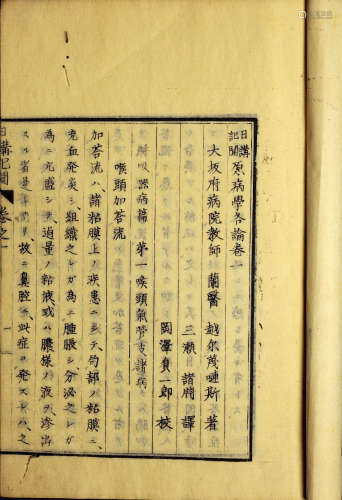 日講記聞 原病學各論卷二
大坂府病院教師 蘭醫 越尔蔑嗹斯 著
三瀬諸淵 譯
岡澤貞一郎 校
呼吸器病篇 第一喉頭氣管支諸病
喉頭加荅流
加荅流ハ、諸粘膜上ノ疾患ニシテ、局部ノ粘膜ニ、
充血発炎シ、組織之レガ為ニ腫脹シ、分泌之レガ
為ニ亢盛シテ、過量ノ粘液或ハ膿様ノ液ヲ滲出
スル者
故ニ鼻腔ニ此症ヲ発スレバ、之
日講記聞 卷之一